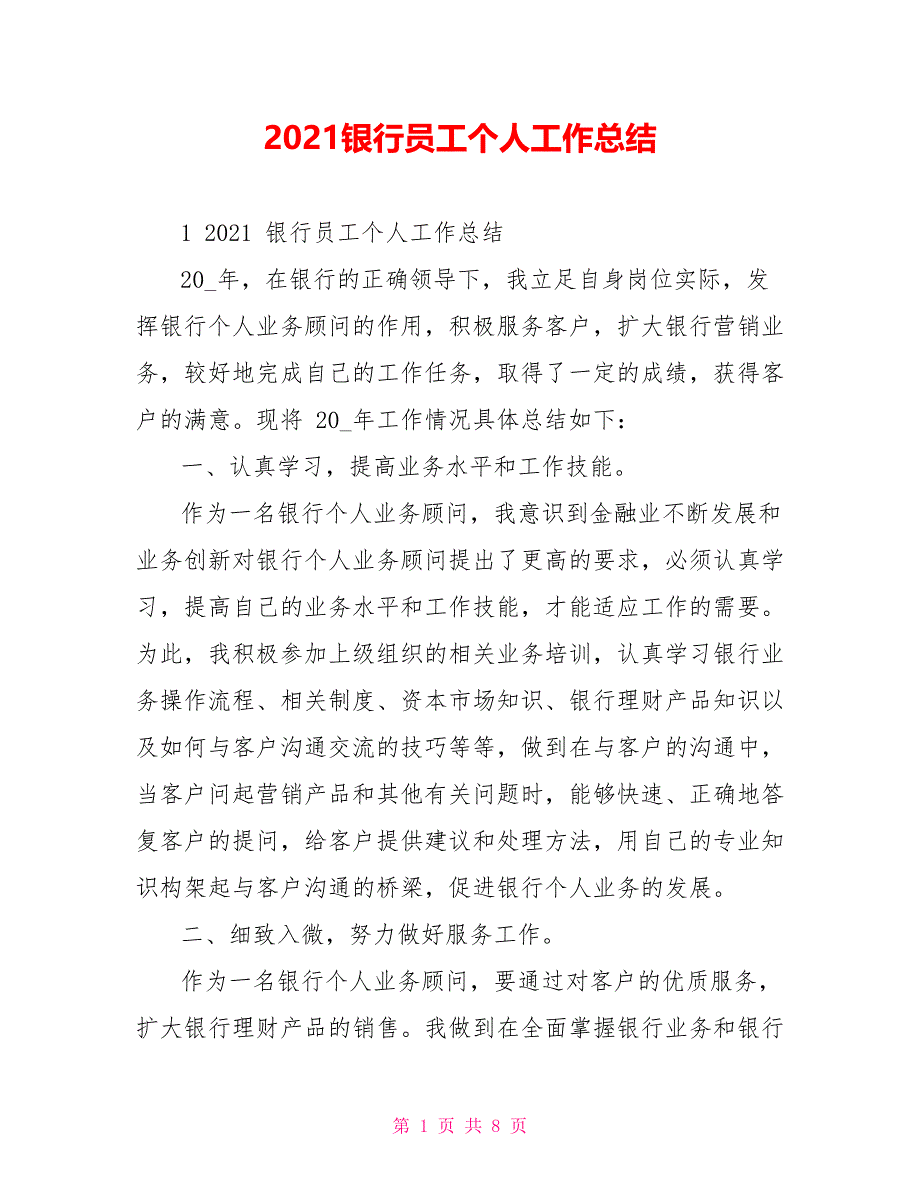 2021银行员工个人工作总结
1 2021 银行员工个人工作总结
20_年，在银行的正确领导下，我立足自身岗位实际，发
挥银行个人业务顾问的作用，积极服务客户，扩大银行营销业
务，较好地完成自己的工作任务，取得了一定的成绩，获得客
户的满意。现将 20_年工作情况具体总结如下：
一、认真学习，提高业务水平和工作技能。
作为一名银行个人业务顾问，我意识到金融业不断发展和
业务创新对银行个人业务顾问提出了更高的要求，必须认真学
习，提高自己的业务水平和工作技能，才能适应工作的需要。
为此，我积极参加上级组织的相关业务培训，认真学习银行业
务操作流程、相关制度、资本市场知识、银行理财产品知识以
及如何与客户沟通交流的技巧等等，做到在与客户的沟通中，
当客户问起营销产品和其他有关问题时，能够快速、正确地答
复客户的提问，给客户提供建议和处理方法，用自己的专业知
识构架起与客户沟通的桥梁，促进银行个人业务的发展。
二、细致入微，努力做好服务工作。
作为一名银行个人业务顾问，要通过对客户的优质服务，
扩大银行理财产品的销售。我做到在全面掌握银行业务和银行
第 1 页 共 8 页